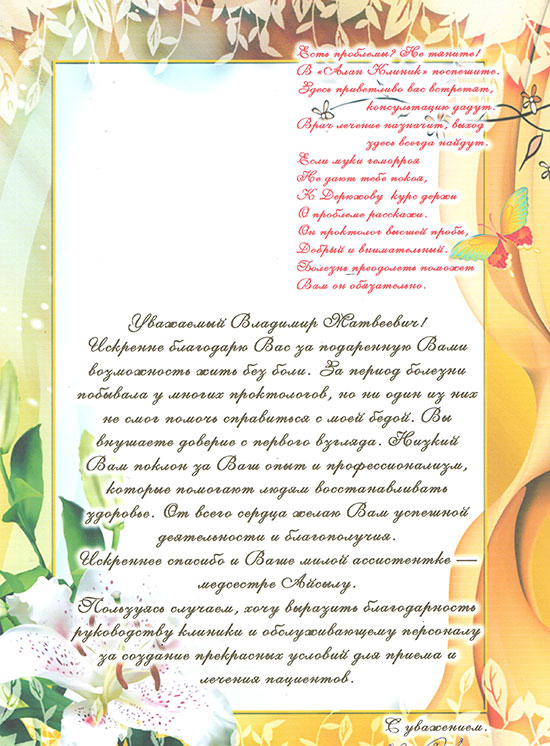 Есть проблемы? Не тяните!
В «Алан Клиник» поспешите.
Здесь приветливо вас встретят,
консультацию дадут.
Врач лечение назначит, выход
здесь всегда найдут.
Если муки геморроя
Не дают тебе покоя,
К Дерюхову курс держи
О проблеме расскажи.
Он проктолог высшей пробы,
Добрый и внимательный.
Болезнь преодолеть поможет
Вам он обязательно.
Уважаемый Владимир Матвеевич!
Искренне благодарю Вас за подаренную Вами
возможность жить без боли. За период болезни
побывала у многих проктологов, но ни один из них
не смог помочь справиться с моей бедой. Вы
внушаете доверие с первого взгляда. Низкий
Вам поклон за Ваш опыт и профессионализм,
которые помогают людям восстанавливать
здоровье. От всего сердца желаю Вам успешной
деятельности и благополучия.
Искреннее спасибо и Ваше милой ассистентке —
медсестре Айсылу.
Пользуясь случаем, хочу выразить благодарность
руководству клиники и обслуживающему персоналу
за создание прекрасных условий для приема и
лечения пациентов.
С уважением.